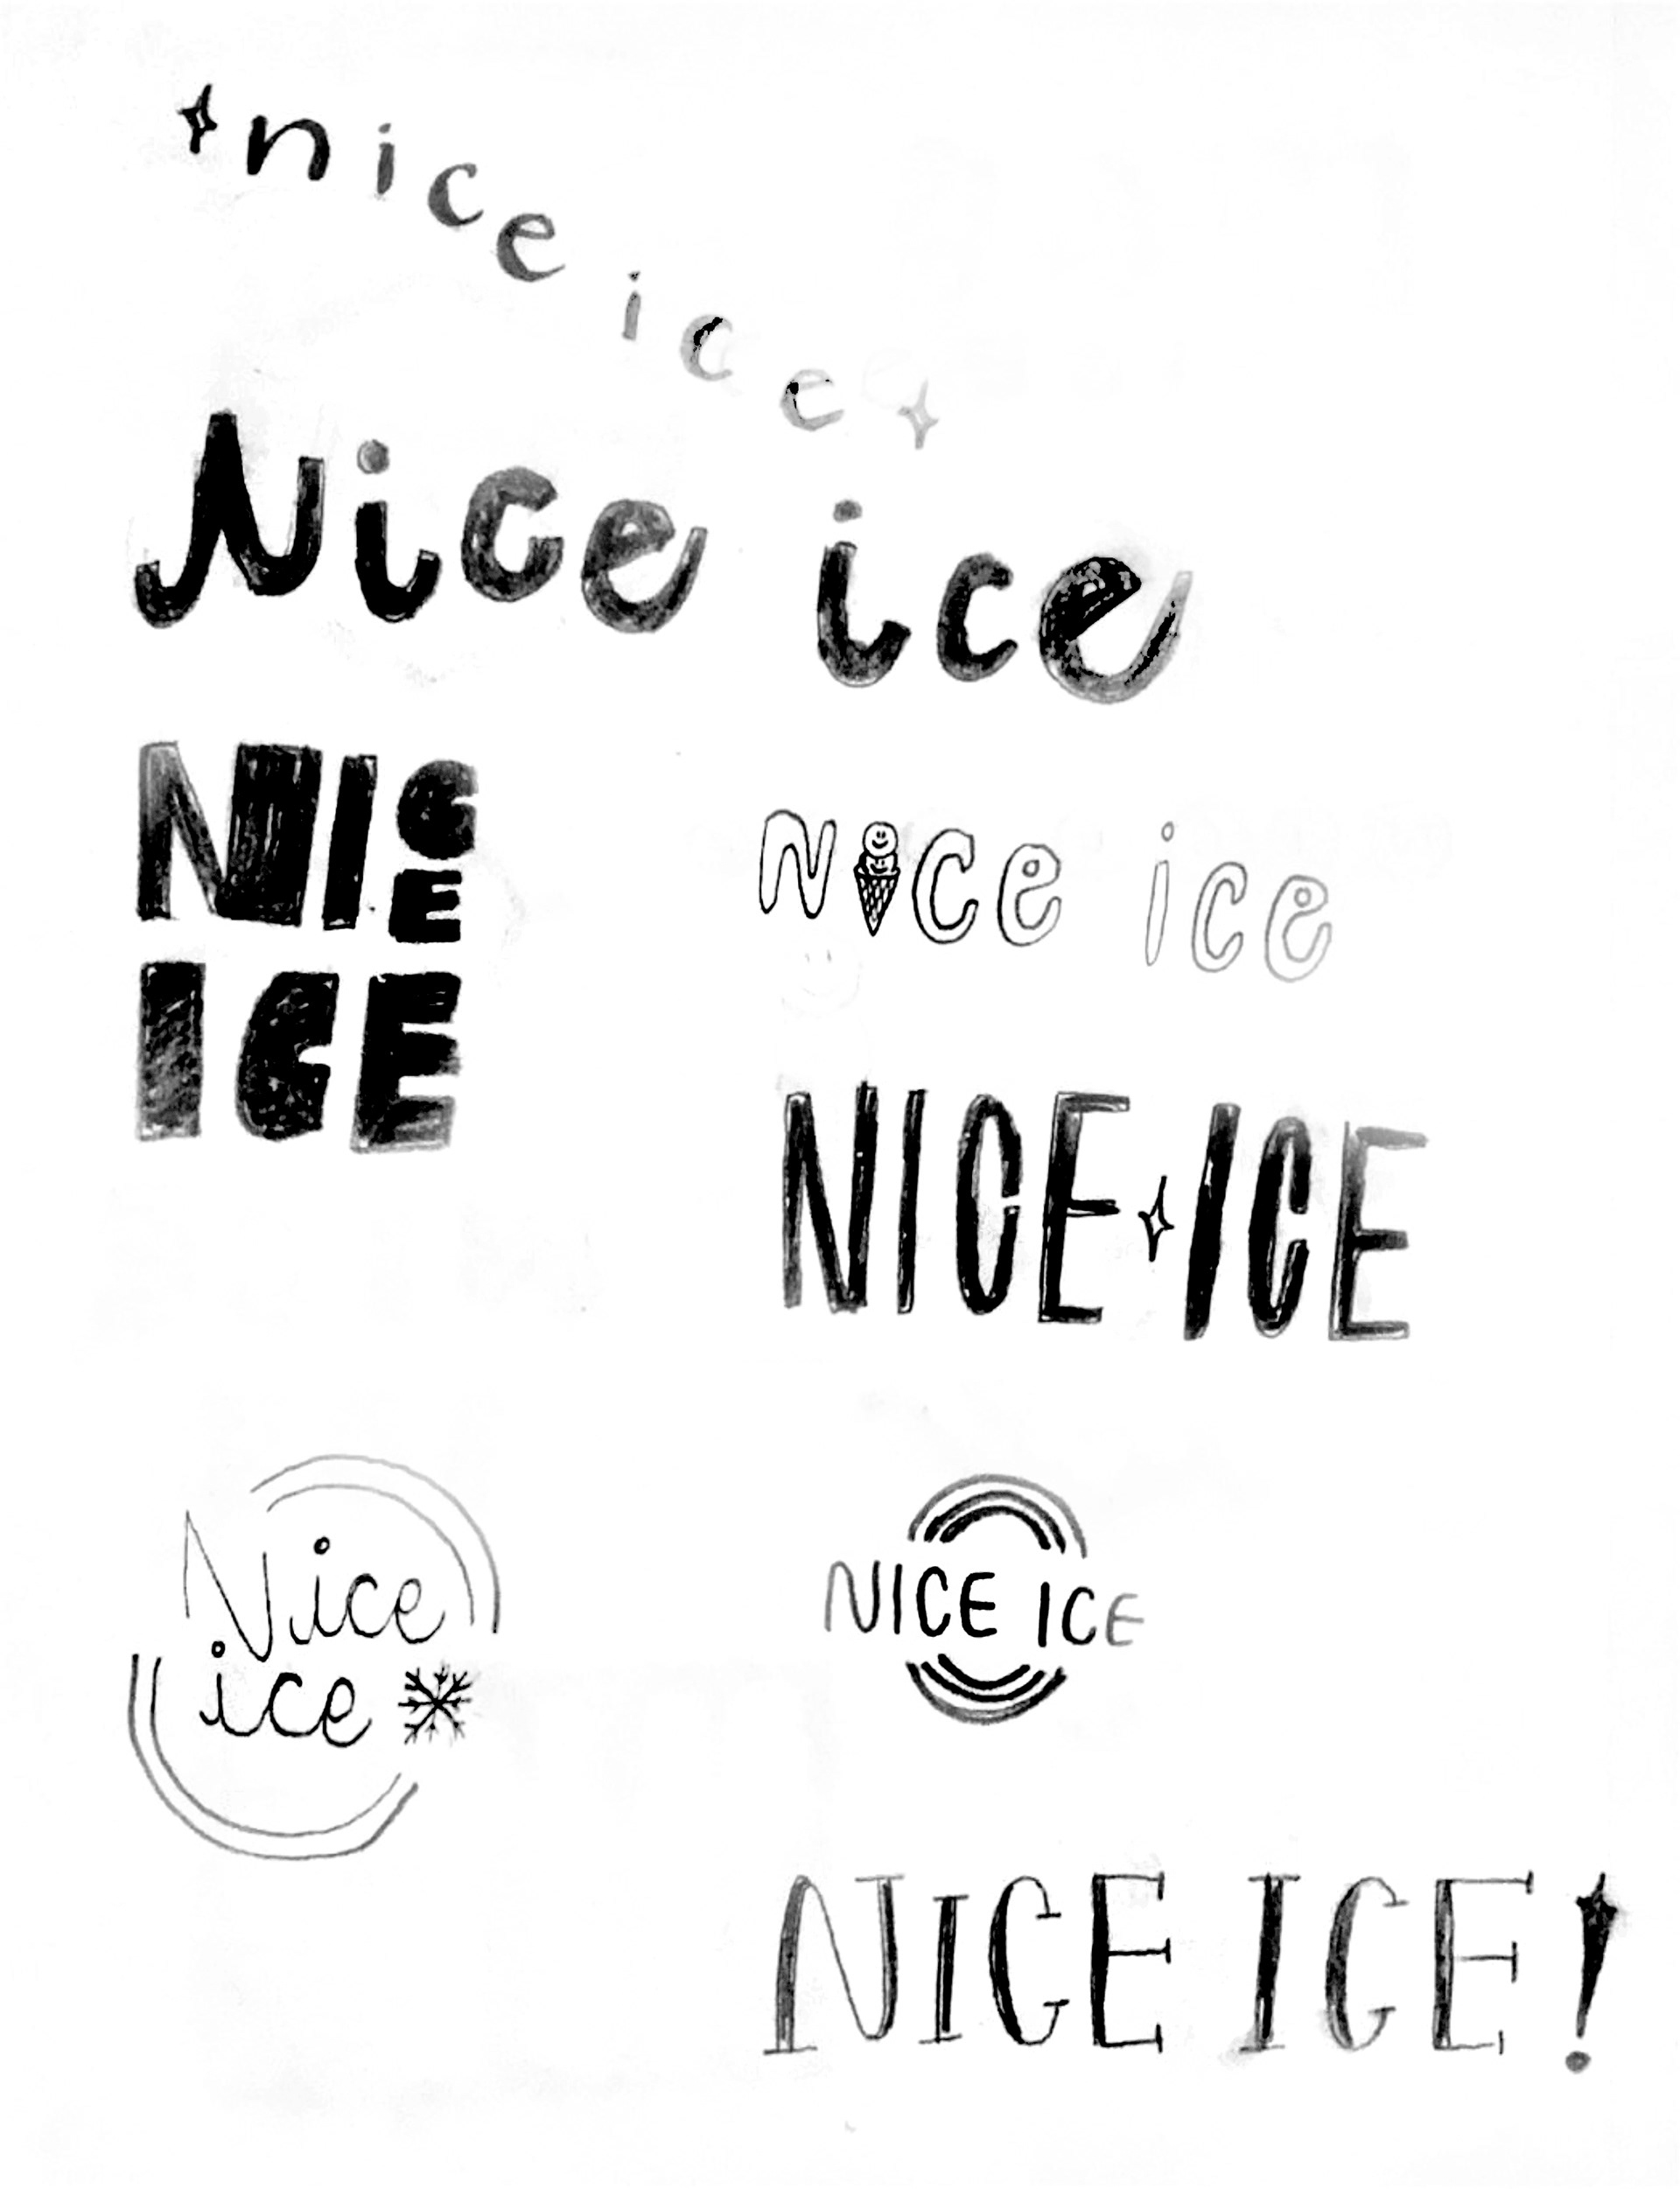 nice ice
Nice ice
NICE
ICE
Nice ice
NICE ICE
Nice
ice
NICE ICE
NICE ICE!